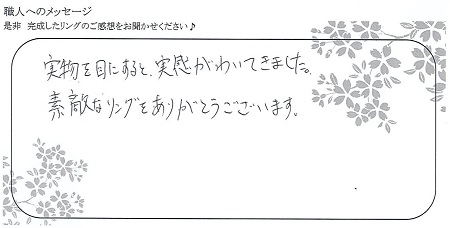 職人へのメッセージ
是非 完成したリングのご感想をお聞かせください♪
実物を目にすると、実感がわいてきました。
素敵なリングをありがとうございます。